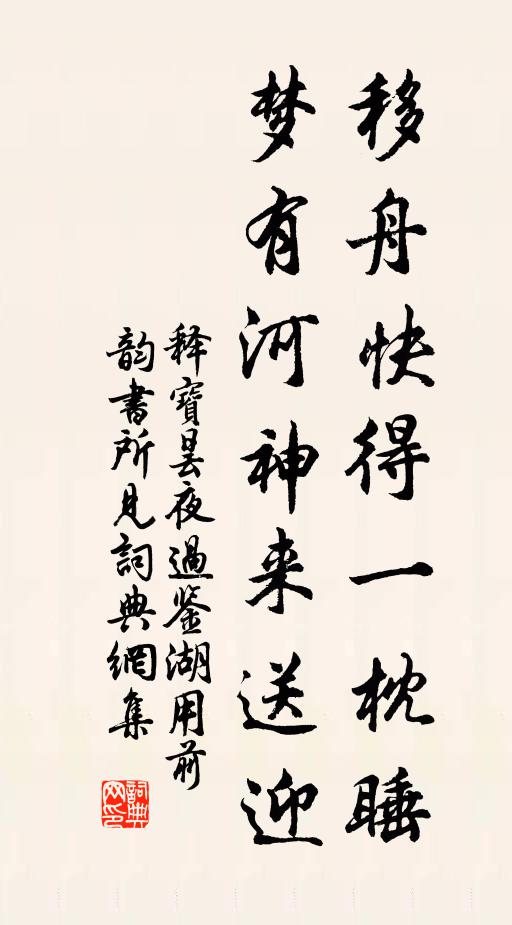 移舟快得一枕睡
梦有河神来送迎
释寶昙夜過鉴湖用前
韵書所見詞典網集
詞典
网印